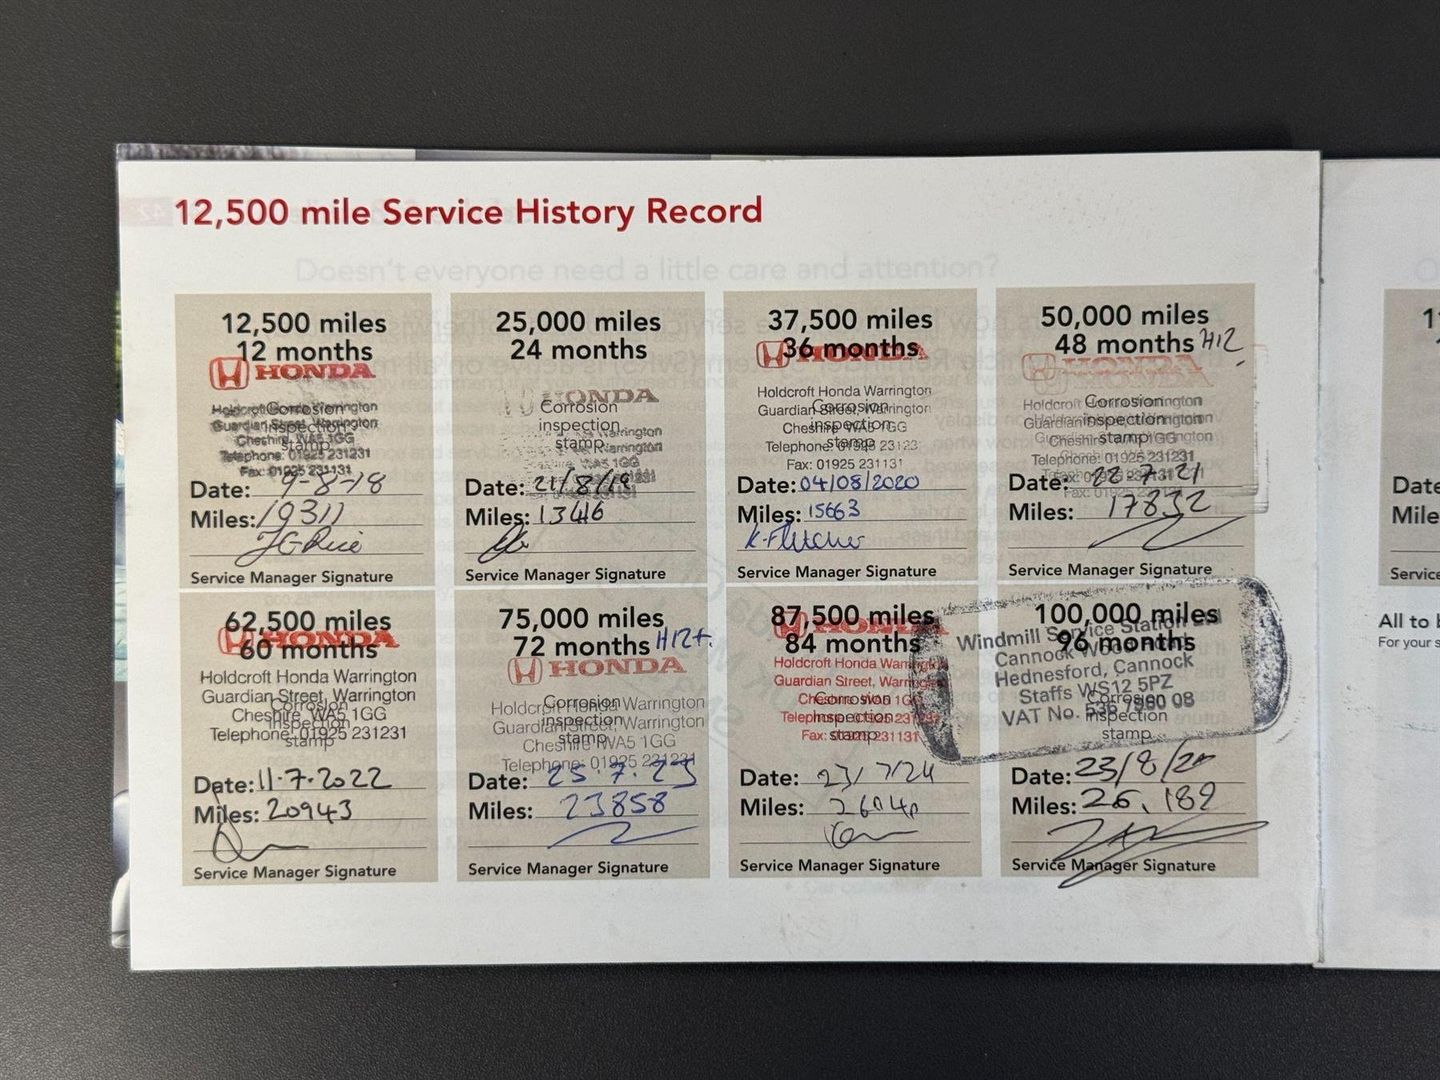 12,500 mile Service History Record
Doesn't everyone need a little care and attention?
12,500 miles
12 months
HONDA
Holdcroft Honda Warrington
Guardian Street, Warrington
Cheshire, WA5 1GG
Telephone: 01925 231231
Fax: 01925 231131
Corrosion
inspection
stamp
Date: 9-8-18
Miles:
Service Manager Signature
25,000 miles
24 months
HONDA
Corrosion
inspection
stamp
Warrington
Warrington
WA5 1GG
Date: 21/8/19
Miles: 13416
Service Manager Signature
37,500 miles
36 months
HONDA
Holdcroft Honda Warrington
Guardian Street, Warrington
Cheshire WA5 1GG
Telephone: 01925
Fax: 01925 231131
Corrosion
inspection
stamp
Date: 04/08/2020
Miles: 15663
K. Fletcher
Service Manager Signature
50,000 miles
48 months H12
HONDA
HONDA
Holdcroft Honda Warrington
Guardian Street, Warrington
Cheshire WA5 1GG
Telephone: 01925 231231
Corrosion
inspection
stamp
Date: 22-7-21
Miles: 17832
Service Manager Signature
62,500 miles
60 months
HONDA
Holdcroft Honda Warrington
Guardian Street, Warrington
Cheshire, WA5 1GG
Telephone: 01925 231231
Corrosion
inspection
stamp
Date: 11.7.2022
Miles: 20943
Service Manager Signature
75,000 miles
72 months H12+.
HONDA
Holdcroft Honda Warrington
Guardian Street, Warrington
Cheshire WA5 1GG
Telephone: 01925 231231
Corrosion
inspection
stamp
Date: 25.7.23
Miles: 23858
Service Manager Signature
87,500 miles
84 months
HONDA
Holdcroft Honda Warrington
Guardian Street, Warrington
Cheshire WA5 1GG
Telephone: 01925 231231
Fax: 01925 231131
Corrosion
inspection
stamp
Date: 23/7/24
Miles:
Service Manager Signature
100,000 miles
96 months
Windmill Service Station Ltd
Cannock Wood Road
Hednesford, Cannock
Staffs WS12 5PZ
VAT No. 536 7980 08
Corrosion
inspection
stamp
Date: 23/8/
Miles: 26,189
Service Manager Signature
Date
Mile
Service
All to b
For your s